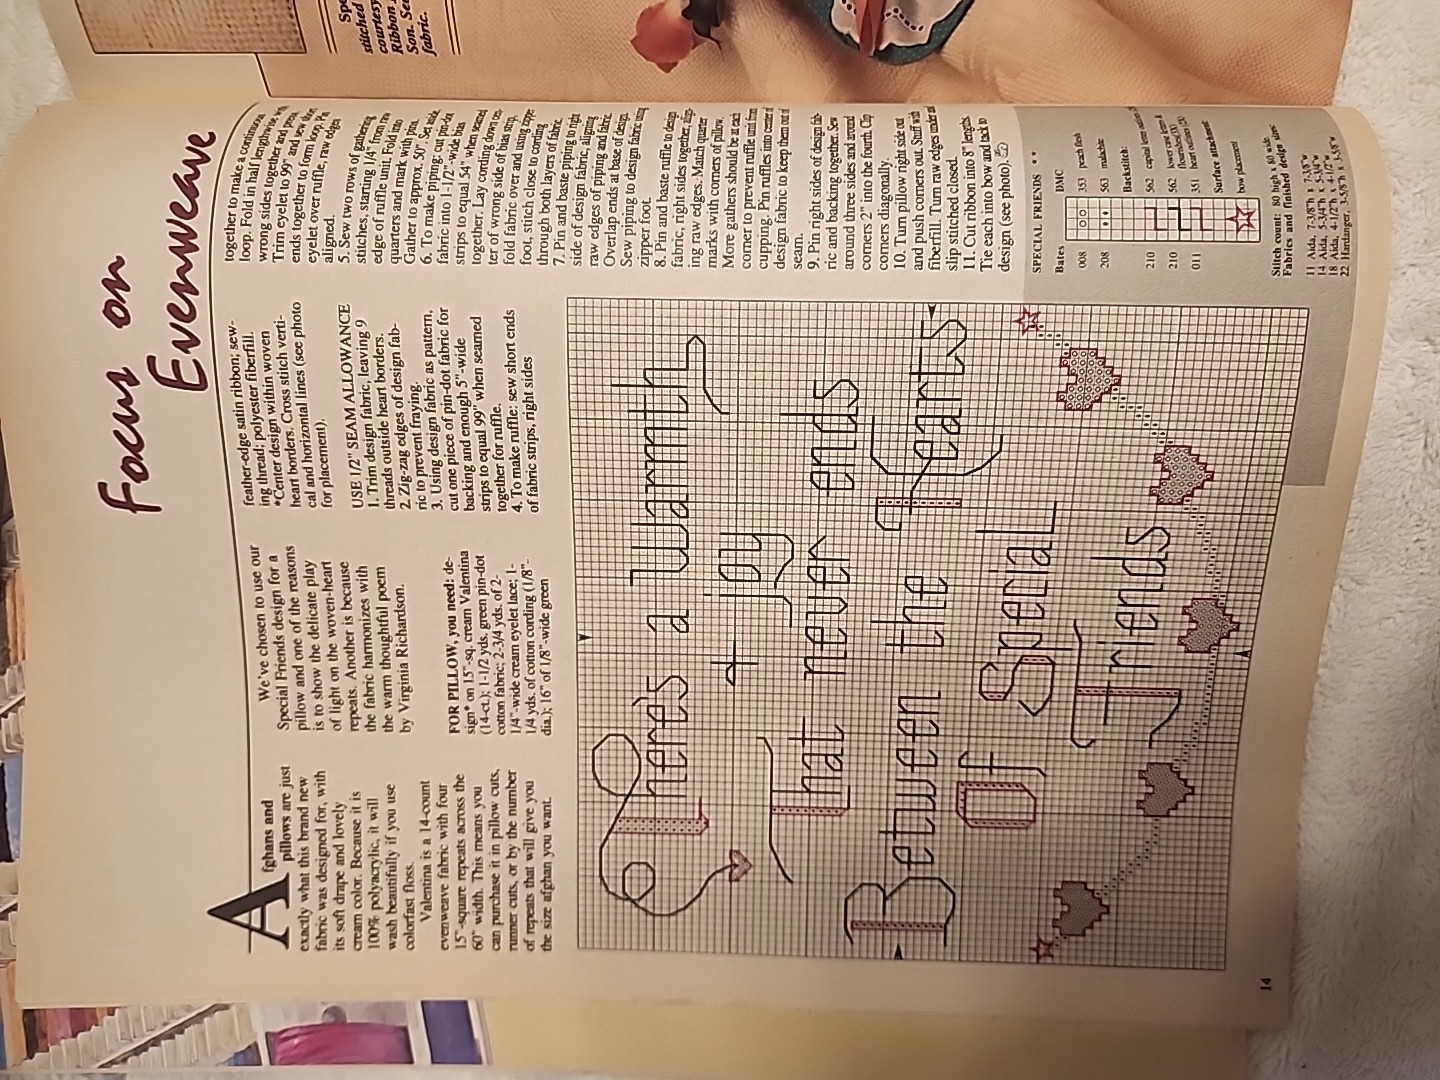 Focus on
Evenweave
Afghans and
pillows are just
exactly what this brand new
fabric was designed for, with
its soft drape and lovely
cream color. Because it is
100% polyacrylic, it will
wash beautifully if you use
colorfast floss.
Valentina is a 14-count
evenweave fabric with four
15"-square repeats across the
60" width. This means you
can purchase it in pillow cuts,
runner cuts, or by the number
of repeats that will give you
the size afghan you want.
We've chosen to use our
Special Friends design for a
pillow and one of the reasons
is to show the delicate play
of light on the woven-heart
repeats. Another is because
the fabric harmonizes with
the warm thoughtful poem
by Virginia Richardson.
FOR PILLOW, you need: de-
sign* on 15"-sq. cream Valentina
(14-ct.); 1-1/2 yds. green pin-dot
cotton fabric; 2-3/4 yds. of 2-
1/4"-wide cream eyelet lace; 1-
1/4 yds. of cotton cording (1/8"-
dia.); 16" of 1/8"-wide green
feather-edge satin ribbon; sew-
ing thread; polyester fiberfill.
*Center design within woven
heart borders. Cross stitch verti-
cal and horizontal lines (see photo
for placement).
USE 1/2" SEAM ALLOWANCE
1. Trim design fabric, leaving 9
threads outside heart borders.
2. Zig-zag edges of design fab-
ric to prevent fraying.
3. Using design fabric as pattern,
cut one piece of pin-dot fabric for
backing and enough 5"-wide
strips to equal 99" when seamed
together for ruffle.
4. To make ruffle: sew short ends
of fabric strips, right sides
together to make a continuous
loop. Fold in half lengthwise with
wrong sides together and press.
Trim eyelet to 99" and sew short
ends together to form loop. Pin
eyelet over ruffle, raw edges
aligned.
5. Sew two rows of gathering
stitches, starting 1/4" from raw
edge of ruffle unit. Fold into
quarters and mark with pins.
Gather to approx. 50". Set aside.
6. To make piping: cut pin-dot
fabric into 1-1/2"-wide bias
strips to equal 54" when seamed
together. Lay cording down cen-
ter of wrong side of bias strip,
fold fabric over and using zipper
foot, stitch close to cording
through both layers of fabric.
7. Pin and baste piping to right
side of design fabric, aligning
raw edges of piping and fabric.
Overlap ends at base of design.
Sew piping to design fabric using
zipper foot.
8. Pin and baste ruffle to design
fabric, right sides together, align-
ing raw edges. Match quarter
marks with corners of pillow.
More gathers should be at each
corner to prevent ruffle unit from
cupping. Pin ruffles into center of
design fabric to keep them out of
seam.
9. Pin right sides of design fab-
ric and backing together. Sew
around three sides and around
corners 2" into the fourth. Clip
corners diagonally.
10. Turn pillow right side out
and push corners out. Stuff with
fiberfill. Turn raw edges under and
slip stitched closed.
11. Cut ribbon into 8" lengths.
Tie each into bow and tack to
design (see photo).
There's a Warmth
+ joy
That never ends
Between the Hearts
Of Special
Friends
SPECIAL FRIENDS **
Bates DMC
008 353 peach flesh
208 563 malachite
Backstitch:
210 562 capital letters
210 562 lower case letters &
flourishes (2X)
011 351 heart outlines (2X)
Surface attachment:
bow placement
Stitch count: 80 high x 80 wide
Fabrics and finished design sizes:
11 Aida, 7-3/8"h x 7-3/8"w
14 Aida, 5-3/4"h x 5-3/4"w
18 Aida, 4-1/2"h x 4-1/2"w
22 Hardanger, 3-5/8"h x 3-5/8"w
14
stitched
courtesy
Ribbon
Son. See
fabric.